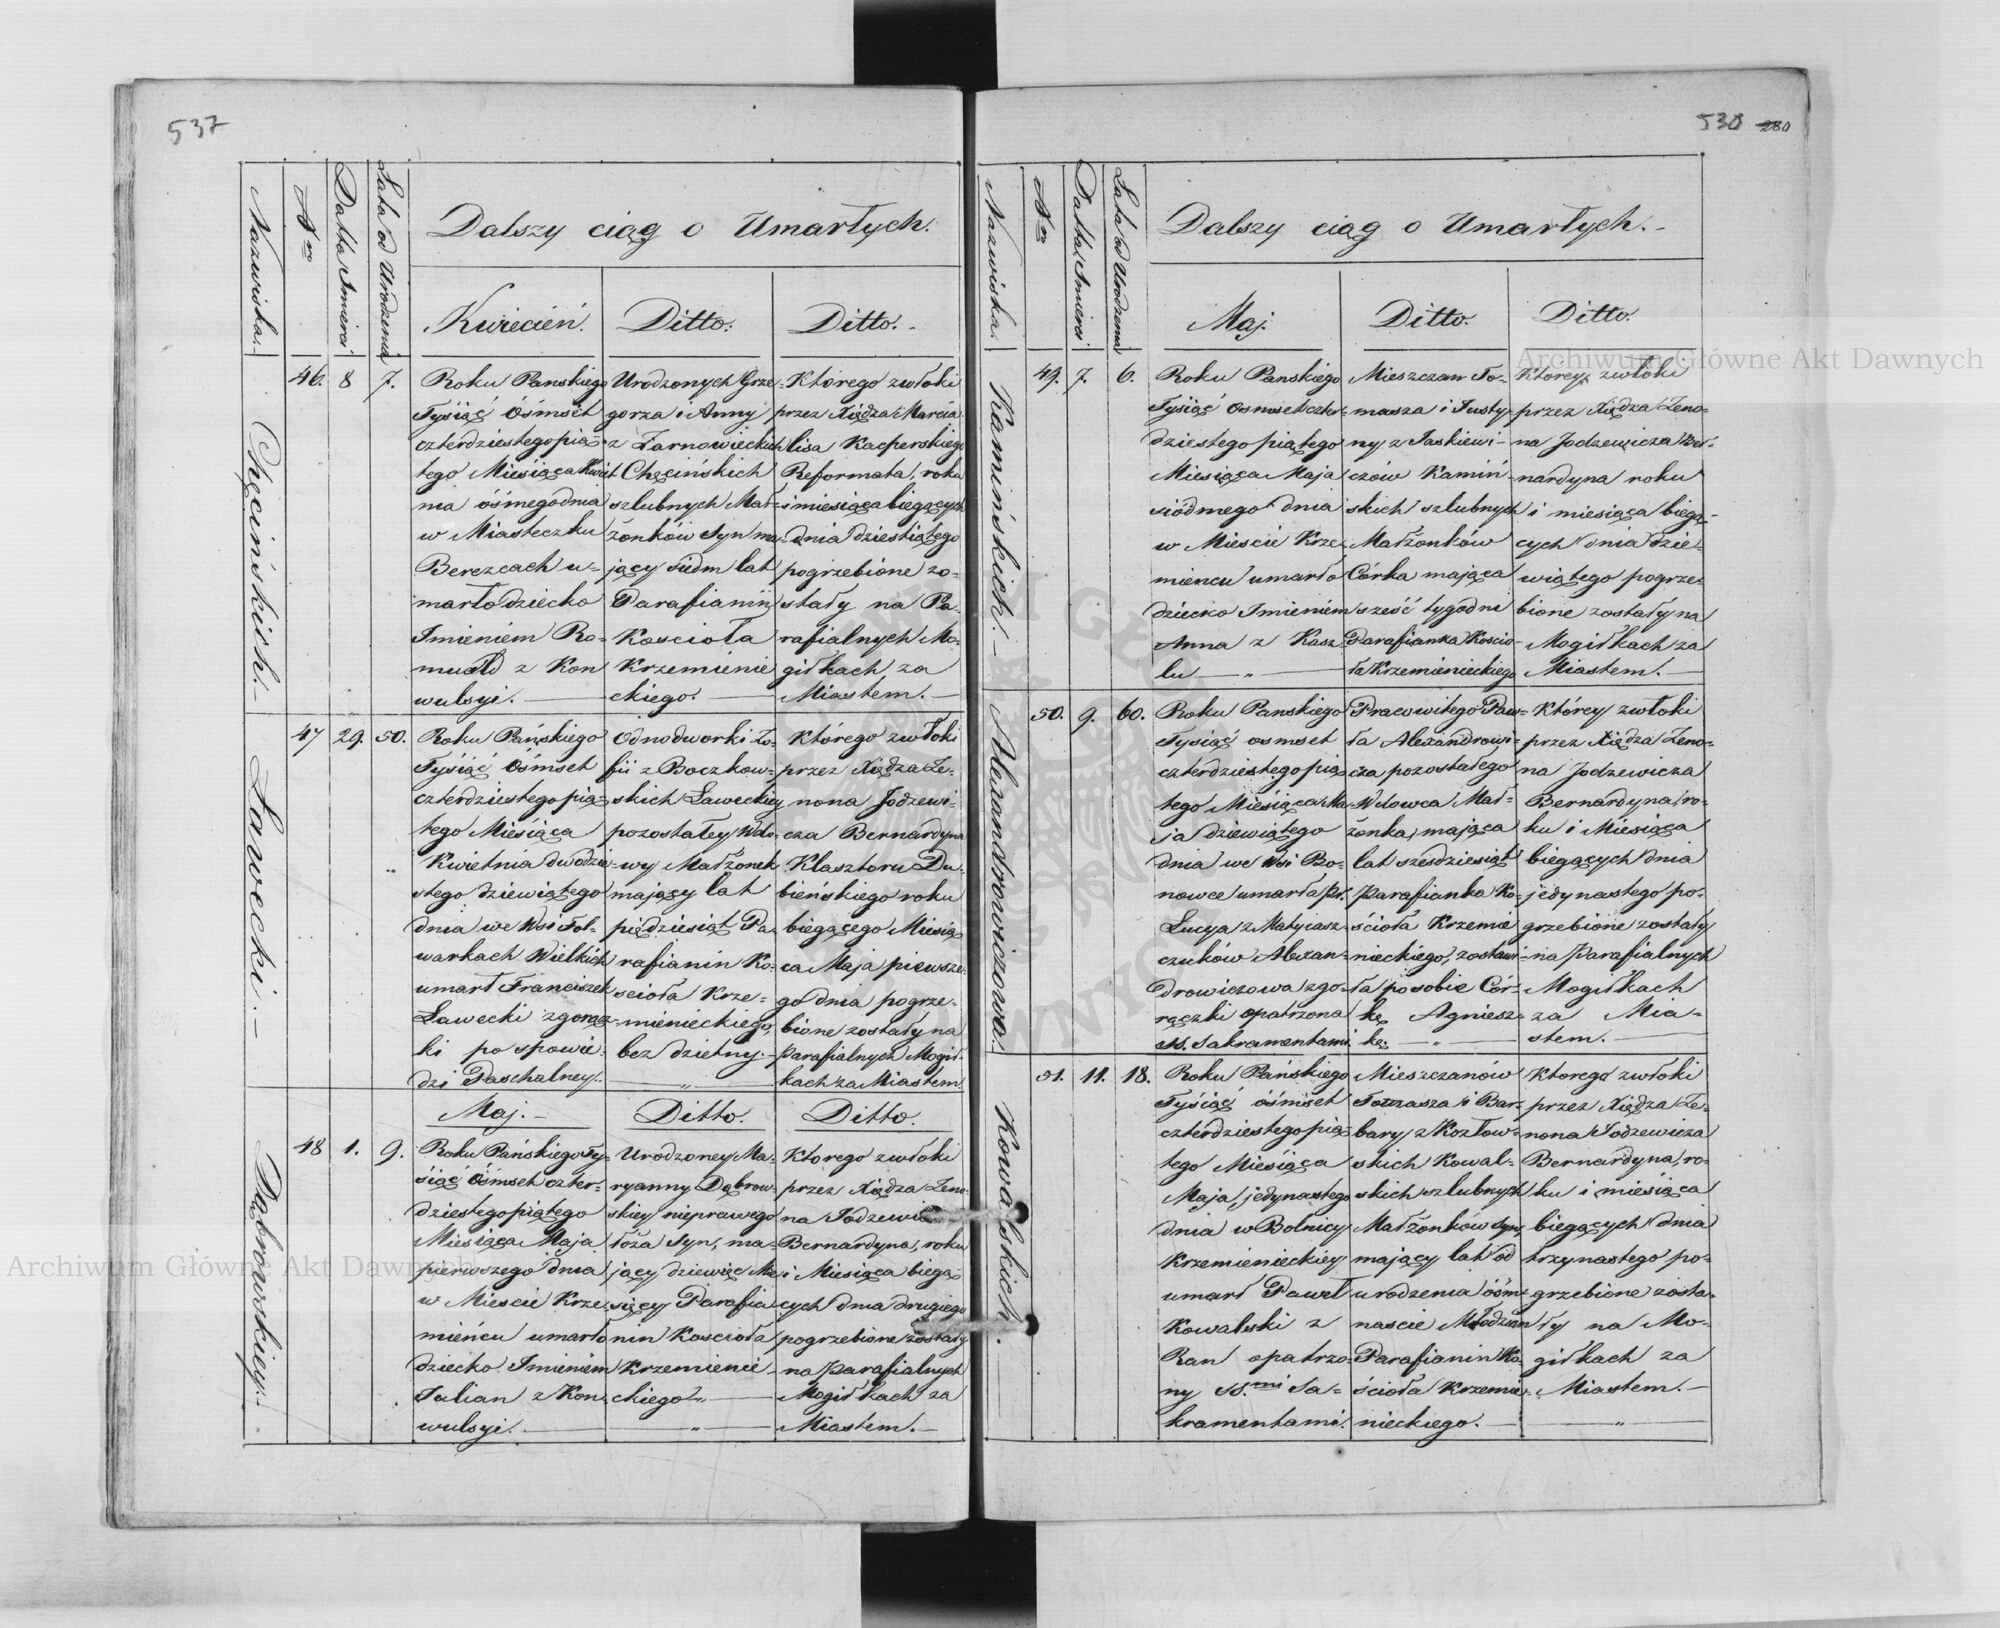 537
Nazwiska.
Nro
Datta Śmierci
Lata od Urodzenia
Dalszy ciąg o Umarłych.
Kwiecień.
Ditto.
Ditto.-
Chęcińskich.-
46.
8
7.
Roku Panskiego
Tysiąć Óśmset
czterdziestego pią-
tego Miesiąca Kwiet
nia óśmego dnia
w Miasteczku
Berezcach u-
marło dziecko
Imieniem Ro-
muald z Kon
wulsyi.
Urodzonych Grze-
gorza i Anny
z Żarnowieckich
Chęcińskich
szlubnych Mał-
żonków Syn ma-
jący siedm lat
Parafianin
Kościoła
Krzemienie
ckiego.
Którego zwłoki
przez Xiędza Marcia
lisa Kacperskiego
Reformata, roku
i miesiąca biegących
dnia dziesiątego
pogrzebione zo-
stały na Pa-
rafialnych Mo-
giłkach za
Miastem.
Ławecki.-
47
29.
50.
Roku Pańskiego
Tysiąć Óśmset
czterdziestego pią-
tego Miesiąca
Kwietnia dwódzie-
stego dziewiątego
dnia we Wsi Fol-
warkach Wielkich
umarł Franciszek
Ławecki z gorącz-
ki po spowie-
dzi Paschalney.
Odnodworki Zo-
fii z Boczkow-
skich Ławeckiey
pozostałey Wdo-
wy Małżonek
mający lat
piędziesiąt Pa-
rafianin Ko-
scioła Krze-
mienieckiego,
bezdzietny.-
Którego zwłoki
przez Xiędza Ze-
nona Jodzewi-
cza Bernardyna
Klasztoru Du-
bieńskiego roku
biegącego Miesią
ca Maja pierwsze-
go dnia pogrze-
bione zostały na
parafialnych Mogił-
kach za Miastem
Maj.-
Ditto.
Ditto.
Dąbrowskiey.-
48
1.
9.
Roku Pańskiego Ty-
śiąć Óśmset czter-
dziestego piątego
Miesiąca Maja
pierwszego dnia
w Mieście Krze-
mieńcu umarło
dziecko Imieniem
Julian z Kon-
wulsyi.
Urodzoney Ma-
ryanny Dąbrow-
skiey nieprawego
łoża Syn, ma-
jący dziewięć Mie
sięcy Parafia
nin Kościoła
Krzemienie-
ckiego
Którego zwłoki
przez Xiędza Zeno-
na Jodzewi
Bernardyna, roku
i Miesiąca biegą-
cych dnia drugiego
pogrzebione zostały
na Parafialnych
Mogiłkach za
Miastem.-
538 280
Nazwiska.
Nro
Datta Śmierci
Lata od Urodzenia
Dalszy ciąg o Umarłych.-
Maj.
Ditto.
Ditto.
Kamińskich.-
49.
7.
6.
Roku Panskiego
Tysiąć Osmset czter-
dziestego piątego
Miesiąca Maja
siódmego dnia
w Mieście Krze-
mieńcu umarło
dziecko Imieniem
Anna z Kasz
lu
Mieszczan To-
masza i Justy-
ny z Jaskiewi-
czów Kamiń
skich szlubnych
Małżonków
Córka mająca
sześć tygodni
Parafianka Koscio-
ła Krzemienieckiego
Ktorey zwłoki
przez Xiędza Zeno-
na Jodzewicza Ber-
nardyna roku
i miesiąca biegą-
cych dnia dzie-
wiątego pogrze-
bione zostały na
Mogiłkach za
Miastem.-
Alexandrowiczowa.
50.
9.
60.
Roku Panskiego
Tysiąć osmset
czterdziestego pią
tego Miesiąca Ma-
ja dziewiątego
dnia we Wsi Bo-
nowce umarła Pr.
Lucya z Matyasz-
czuków Alexan-
drowiczowa z go-
rączki opatrzona
SS. Sakramentami
Pracowitego Paw-
ła Alexandrowi-
cza pozostałego
Wdowca Mał-
żonka, mająca
lat sześdziesiąt
Parafianka Ko-
ścioła Krzemie
nieckiego, zostawi-
ła po sobie Cór-
kę Agniesz-
kę.
Którey zwłoki
przez Xiędza Zeno-
na Jodzewicza
Bernardyna, ro-
ku i Miesiąca
biegących dnia
jedynastego po-
grzebione zostały
na Parafialnych
Mogiłkach
za Mia-
stem.-
Kowalskich.
51.
11.
18.
Roku Pańskiego
Tyśiąć óśmset
czterdziestego pią-
tego Miesiąca
Maja, jedynastego
dnia w Bolnicy
Krzemienieckiey
umarł Paweł
Kowalski z
Ran opatrzo-
ny SS.mi Sa-
kramentami.
Mieszczanów
Tomasza i Bar-
bary z Kozłow-
skich Kowal-
skich szlubnych
Małżonków Syn,
mający lat od
urodzenia óśm-
nascie Młodzian
Parafianin Ko-
ścioła Krzemie-
nieckiego.
Ktorego zwłoki
przez Xiędza Ze-
nona Jodzewicza
Bernardyna, ro-
ku i miesiąca
biegących dnia
trzynastego po-
grzebione zosta-
ły na Mo-
giłkach za
Miastem.-
Archiwum Główne Akt Dawnych
Archiwum Główne Akt Dawnych